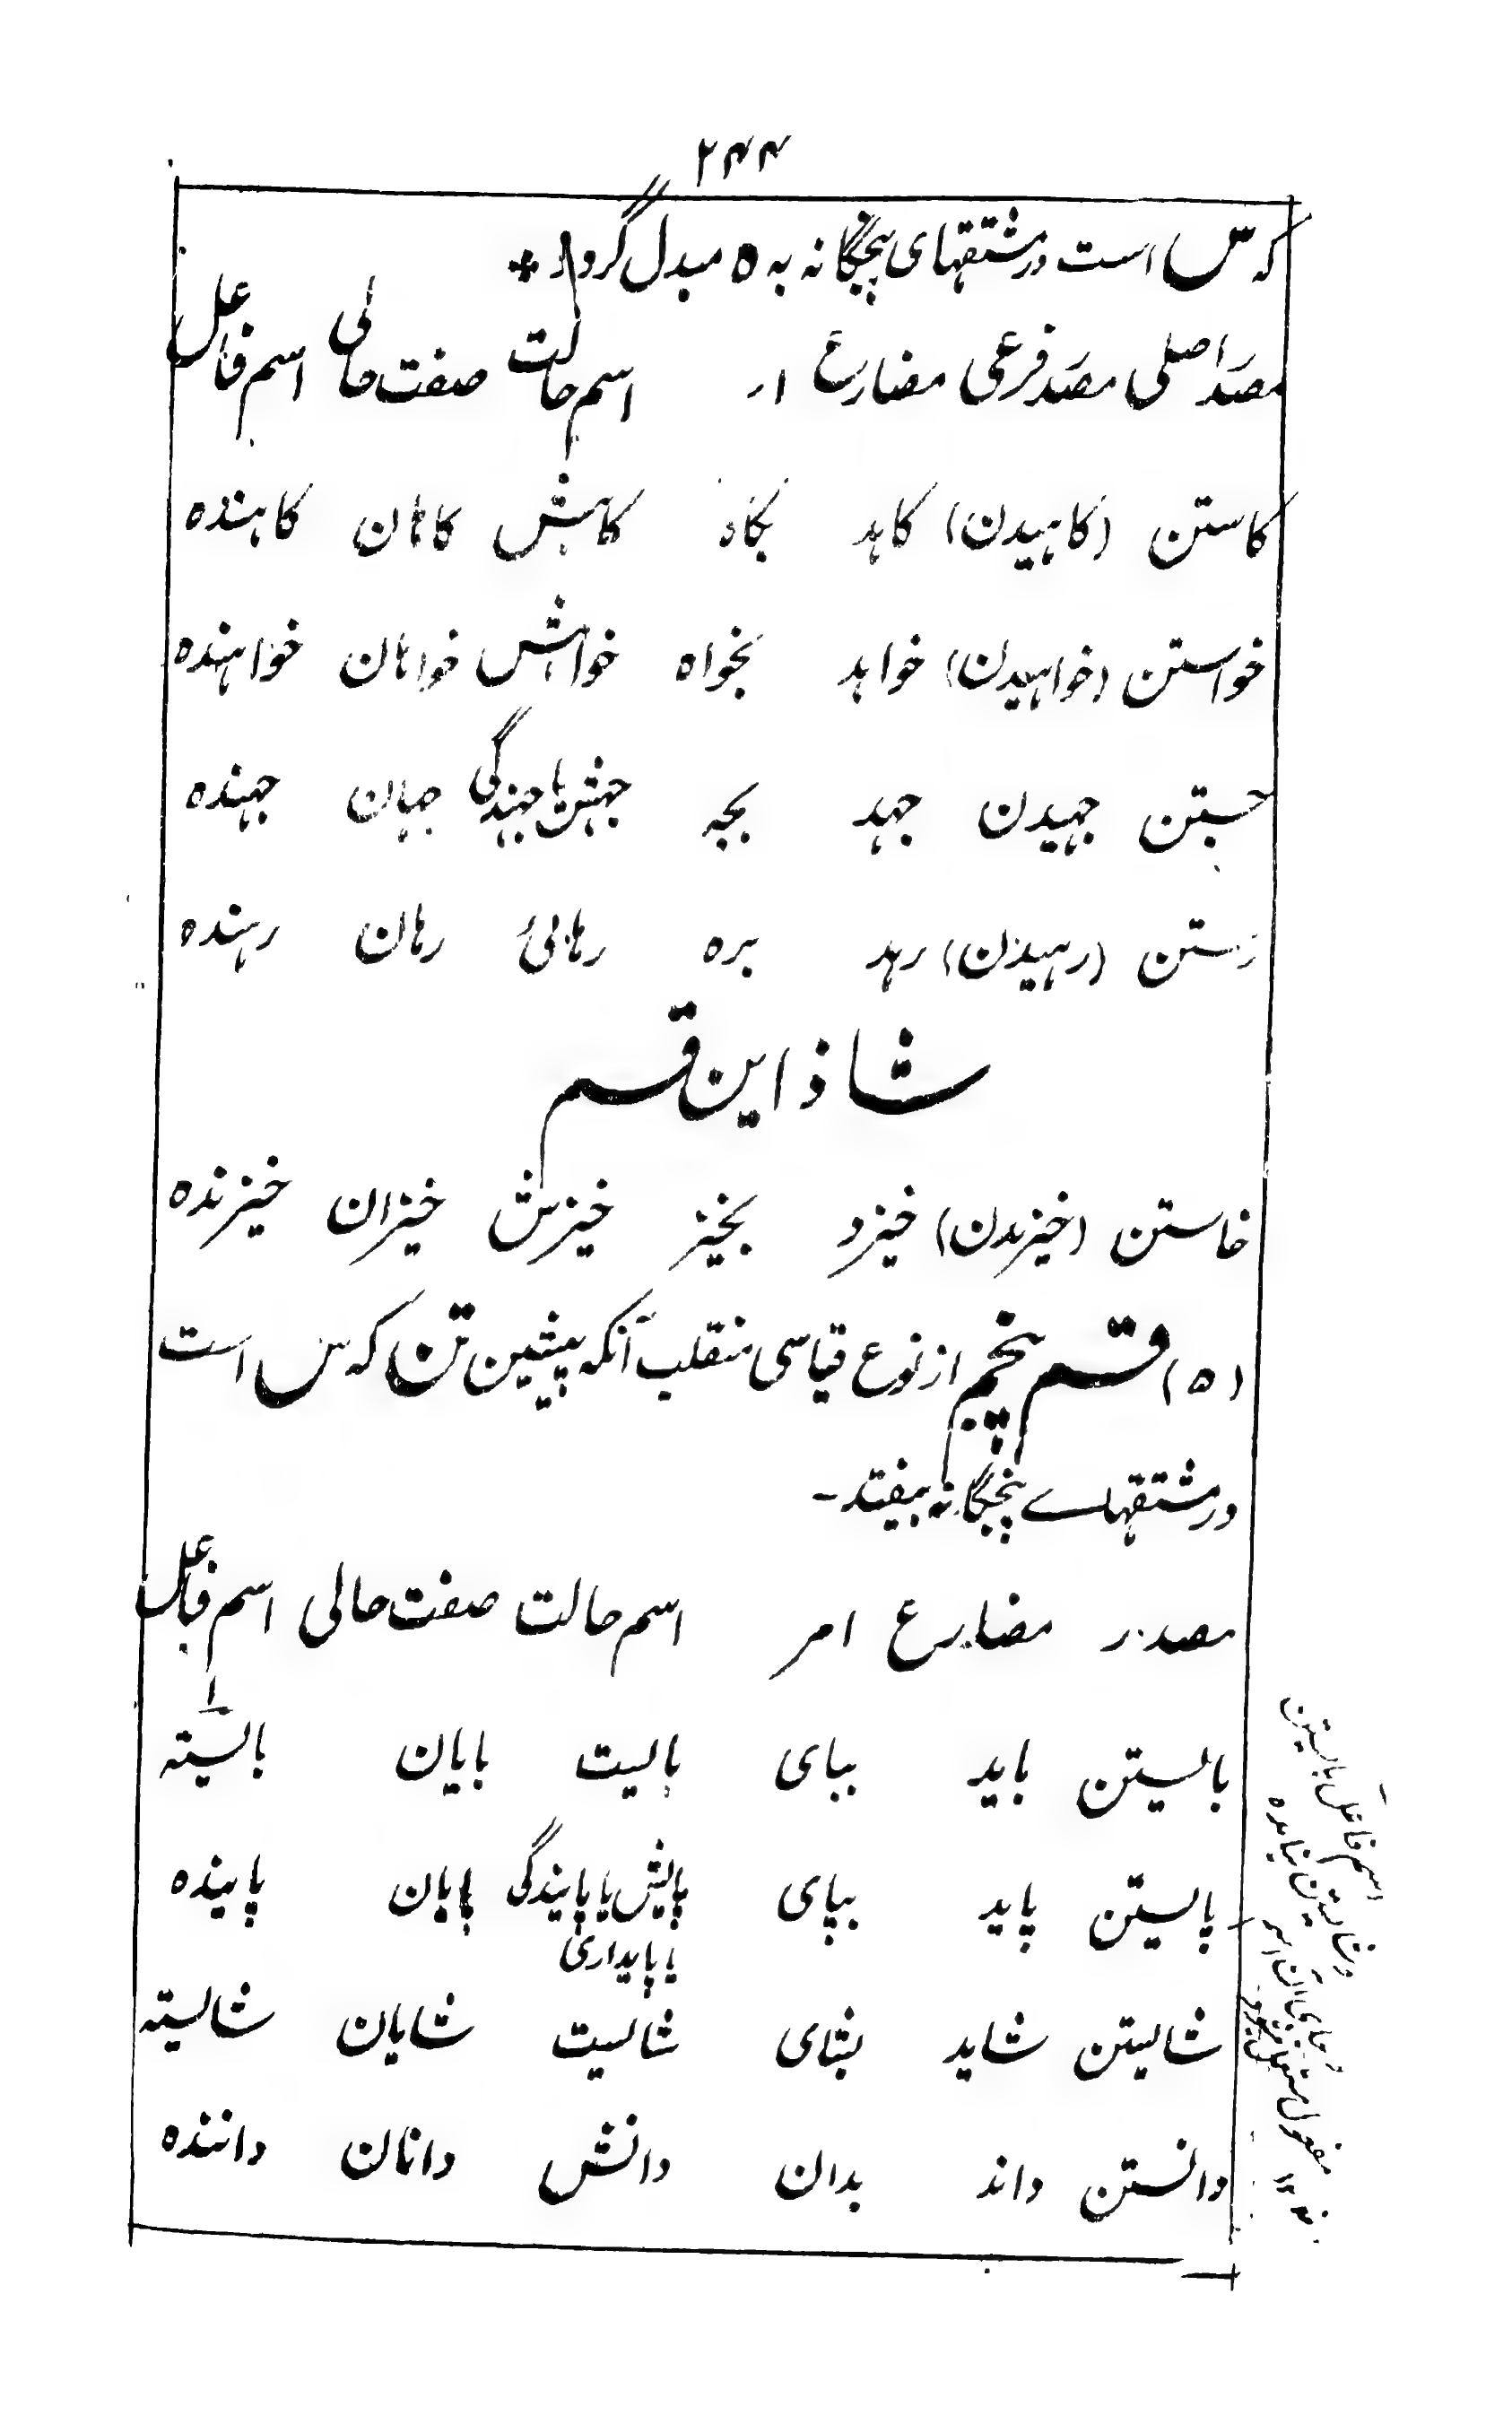 ۲۴۴
که س است در مشتقهای پنجگانه به ه مبدل گردد *
مصدر اصلی مصدر فرعی مضارع امر اسم حالت صفت حالی اسم فاعل
کاستن (کاهیدن) کاهد بکاه کاهش کاهان کاهنده
خواستن (خواهیدن) خواهد بخواه خواهش خواهان خواهنده
جستن جهیدن جهد بجه جهش یا جهندگی جهان جهنده
رستن (رهیدن) رهد بره رهائی رهان رهنده
شاذ این قسم
خاستن (خیزیدن) خیزد بخیز خیزش خیزان خیزنده
(۵) قسم پنجم از نوع قیاسی منقلب آنکه پیشین تن که س است
در مشتقهاے پنجگانه بیفتد -
مصدر مضارع امر اسم حالت صفت حالی اسم فاعل
بایستن باید ببای بایست بایان بایسته
پایستن پاید بپای پایش یا پایندگی پایان پاینده
یا پایداری
شایستن شاید بشای شایست شایان شایسته
دانستن داند بدان دانش دانان داننده
اسم فاعل بایستن
و شایستن نیامده
بجای آن اسم
مفعول مستعمل میشود